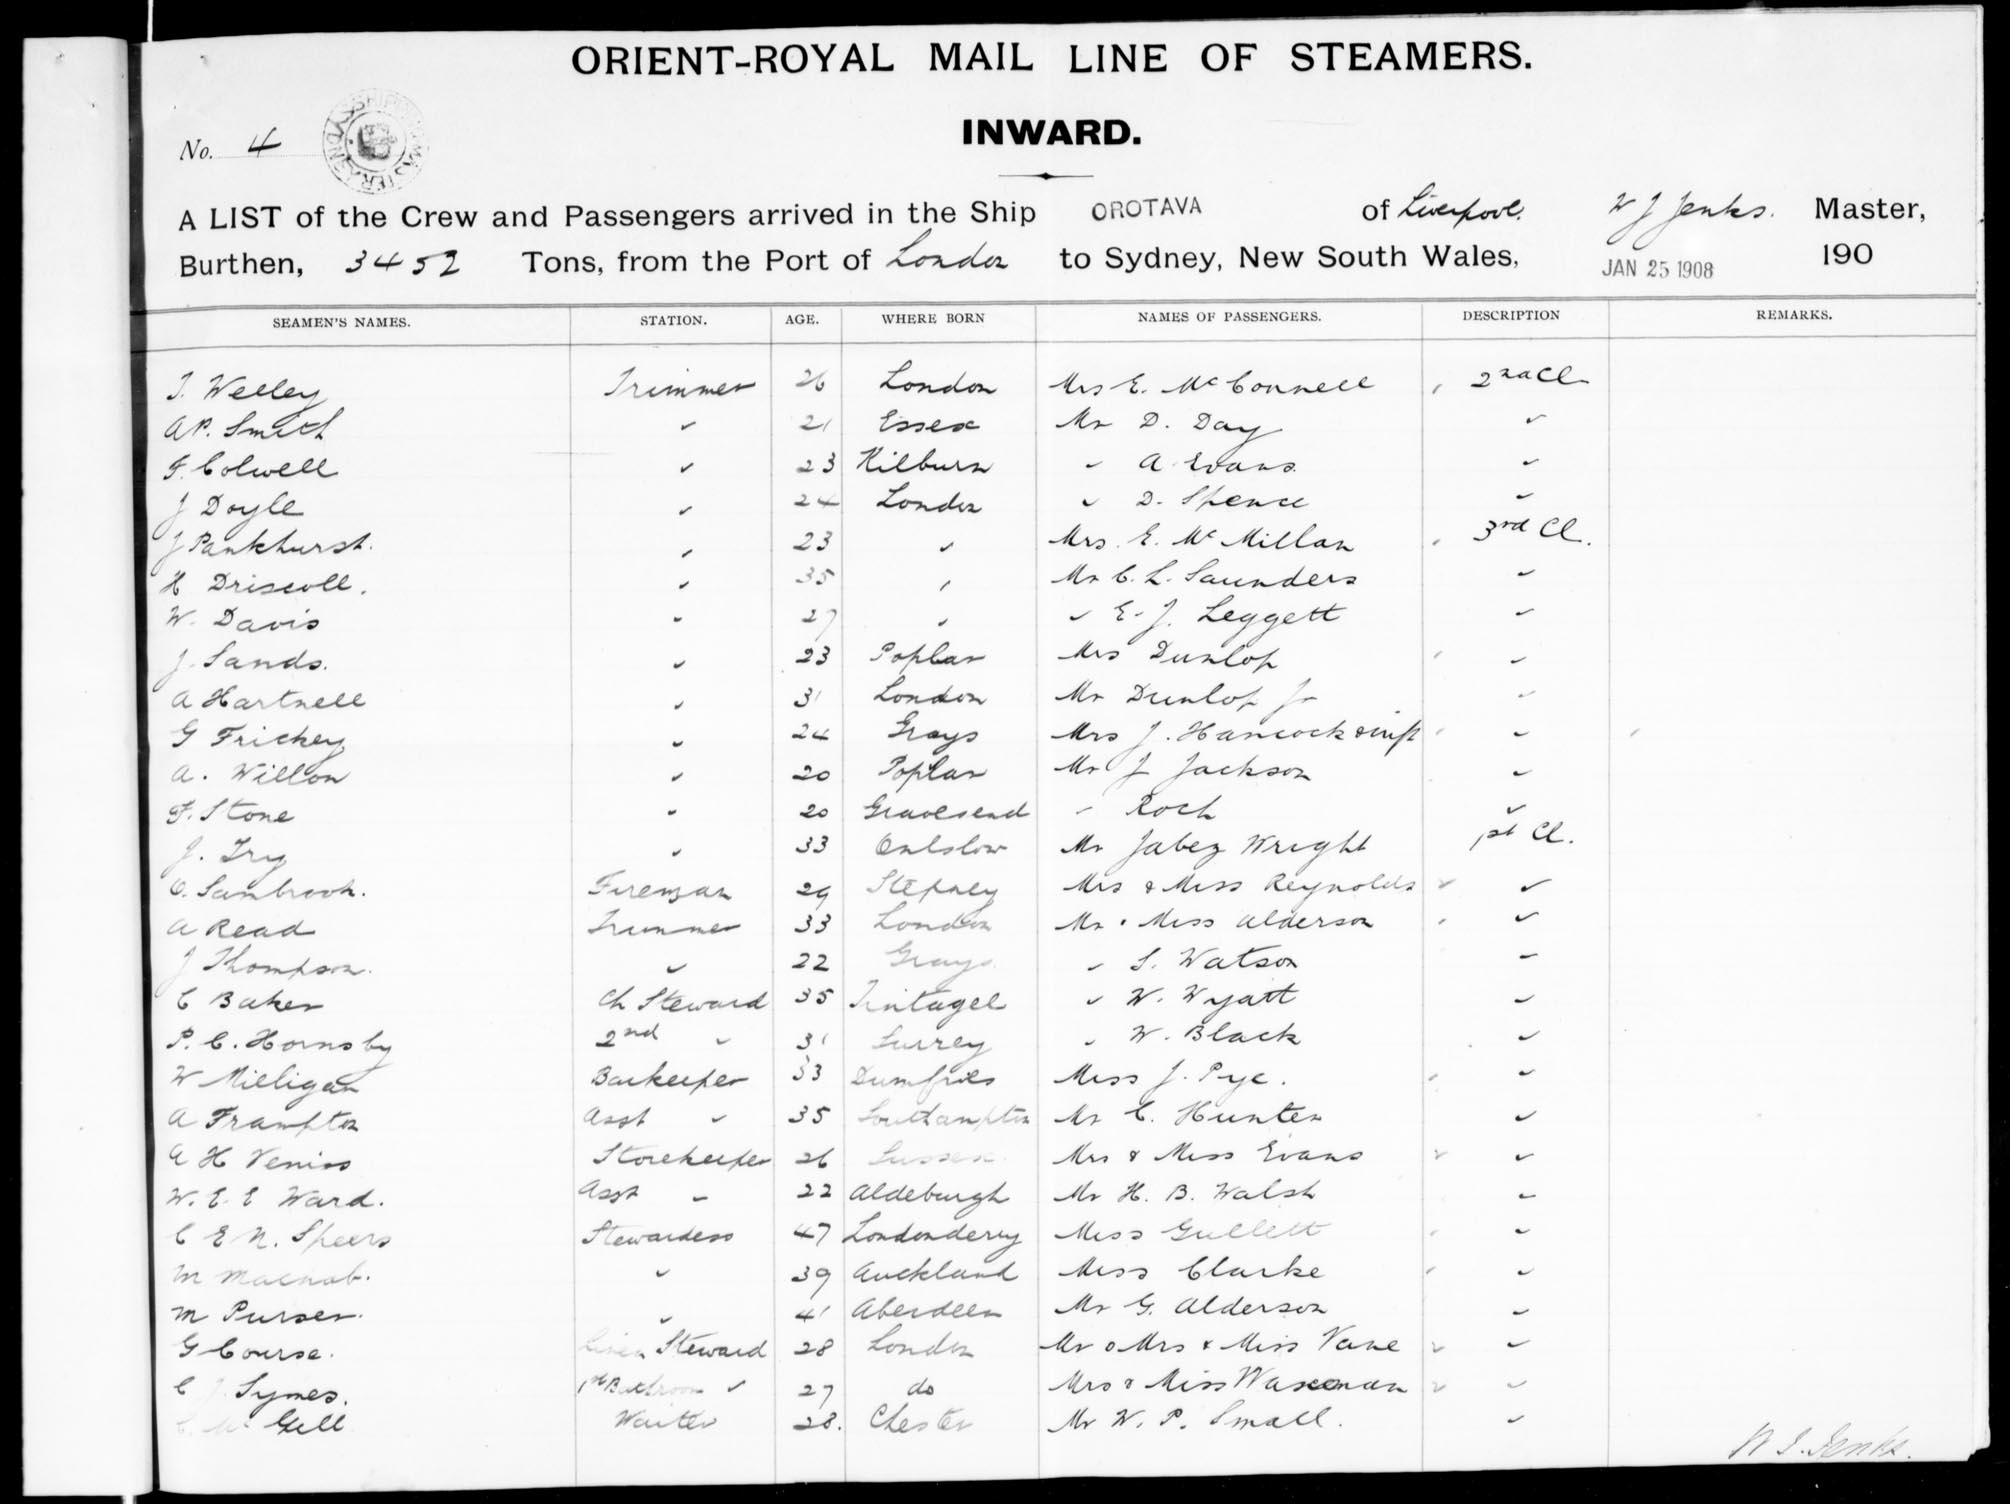 ORIENT-ROYAL MAIL LINE OF STEAMERS.
INWARD.
No. 4
A LIST of the Crew and Passengers arrived in the Ship OROTAVA of Liverpool. W J Jenks. Master,
Burthen, 3452 Tons, from the Port of London to Sydney, New South Wales, JAN 25 1908 190
SEAMEN'S NAMES. STATION. AGE. WHERE BORN NAMES OF PASSENGERS. DESCRIPTION REMARKS.
T. Welley Trimmer 26 London Mrs E. McConnell 2nd Cl
A.P. Smith " 21 Essex Mr D. Day "
F. Colwell " 23 Kilburn " A. Evans "
J Doyle " 24 London " D. Spence "
J Pankhurst. " 23 " Mrs. E. McMillan 3rd Cl.
H Driscoll. " 35 " Mr C. L. Saunders "
W. Davis " 27 " " E. J. Leggett "
J. Sands. " 23 Poplar Mrs Dunlop "
A Hartnell " 31 London Mr Dunlop Jr "
G Frickey " 24 Grays Mrs J. Hancock & inft "
A. Willon " 20 Poplar Mr J Jackson "
F. Stone " 20 Gravesend " Roch "
J. Try " 33 Onslow Mr Jabez Wright 1st Cl.
C. Sambrook. Fireman 29 Stepney Mrs & Miss Reynolds "
A Read Trimmer 33 London Mr & Miss Alderson "
J Thompson. " 22 Grays " S. Watson "
C Baker Ch Steward 35 Tintagel " W. Wyatt "
P. C. Hornsby 2nd " 31 Surrey " W. Black "
W Milligan Barkeeper 33 Dumfries Miss J. Pye. "
A Frampton Asst " 35 Southampton Mr C. Hunter "
A H Veniss Storekeeper 26 Sussex Mrs & Miss Evans "
W. E. E Ward. Asst " 22 Aldeburgh Mr H. B. Walsh "
C E N. Speers Stewardess 47 Londonderry Miss Gullett "
M Macnab. " 39 Auckland Miss Clarke "
M Purser. " 41 Aberdeen Mr G. Alderson "
G Course. Linen Steward 28 London Mr & Mrs & Miss Vane "
C J Symes. 1st Bathroom " 27 do Mrs & Miss Waxman "
Mc Gill Waiter 28. Chester Mr W. P. Small. "
W J. Jenks.